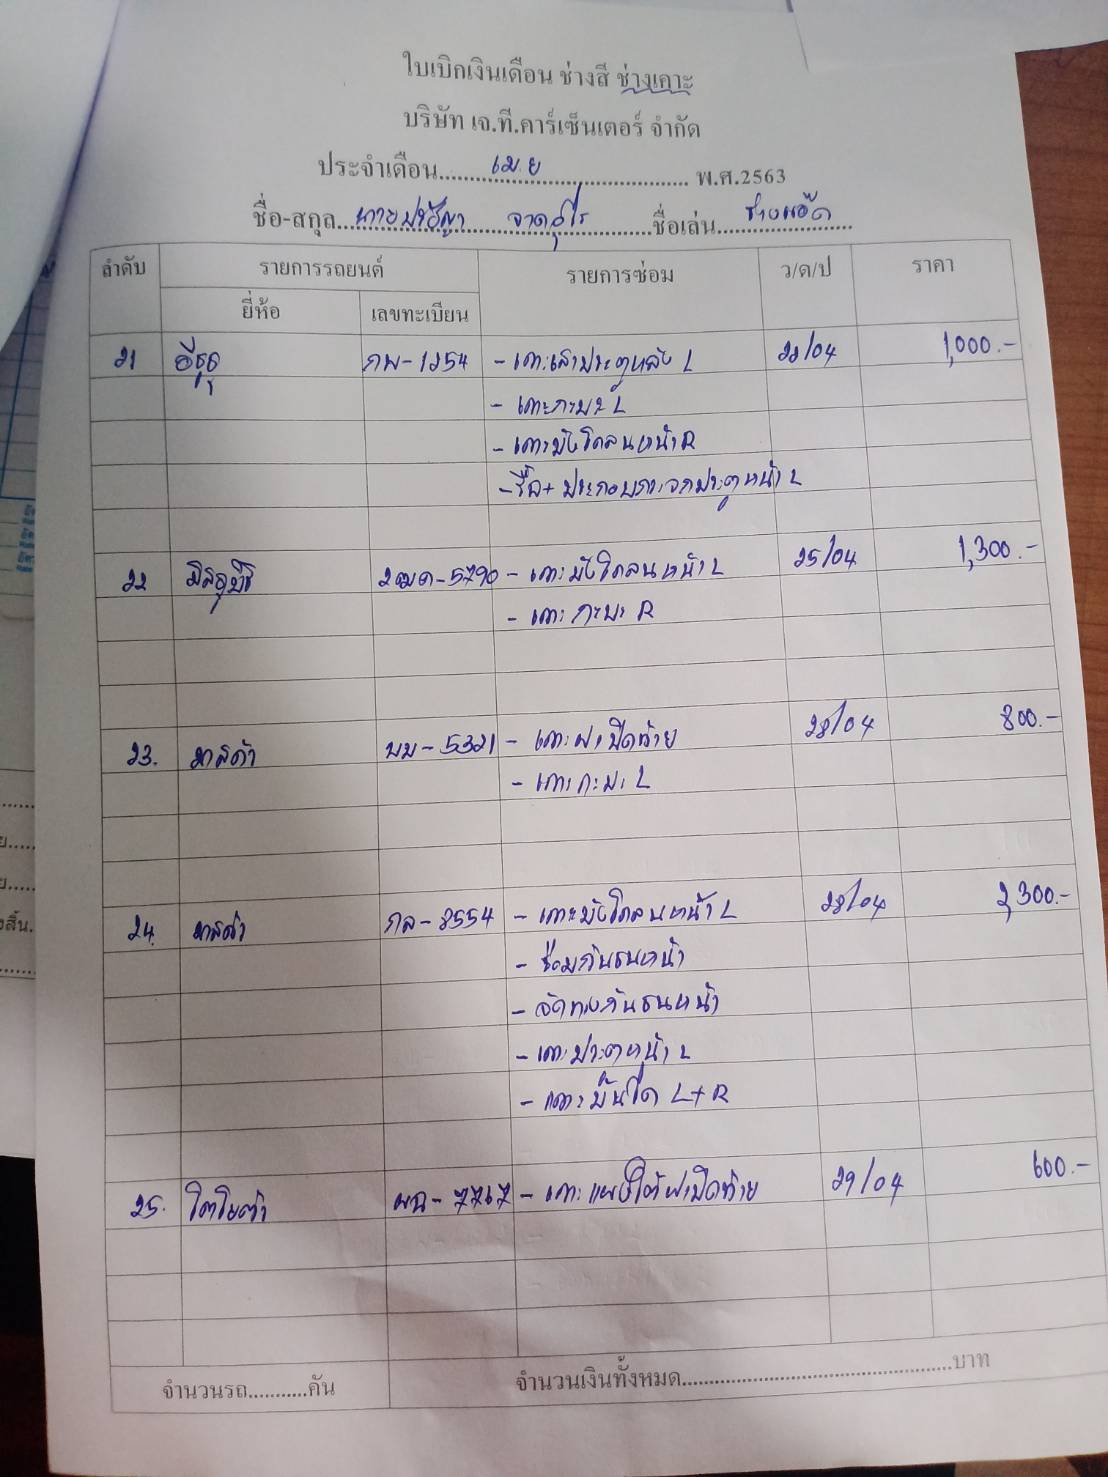 ใบเบิกเงินเดือน ช่างสี ช่างเคาะ
บริษัท เจ.ที.คาร์เซ็นเตอร์ จำกัด
ประจำเดือน......เม.ย......พ.ศ.2563
ชื่อ-สกุล...นายปรัญญา......ชื่อเล่น...ช่างแอ๊ด...
ลำดับ รายการรถยนต์ รายการซ่อม ว/ด/ป ราคา
ยี่ห้อ เลขทะเบียน
21 อีซูซุ 1254 - เคาะเสาประตูหลัง L 22/04 1,000.-
- เคาะกะบะ L
- เคาะบังโคลนหน้า R
- รื้อ + ประกอบกระจกประตูหน้า L
22 มิสซูบิชิ 2ฒด-5790 - เคาะบังโคลนหน้า L 25/04 1,300.-
- เคาะกะบะ R
23. มาสด้า บม-5321 - เคาะฝาปิดท้าย 28/04 800.-
- เคาะกะบะ L
24. มาสด้า กล-8554 - เคาะบังโคลนหน้า L 28/04 2,300.-
- ซ่อมกันชนหน้า
- จัดทรงกันชนหน้า
- เคาะประตูหน้า L
- เคาะบันได L+R
25. โตโยต้า ผฉ-7767 - เคาะแผงใต้ฝาปิดท้าย 29/04 600.-
จำนวนรถ...........คัน จำนวนเงินทั้งหมด......บาท